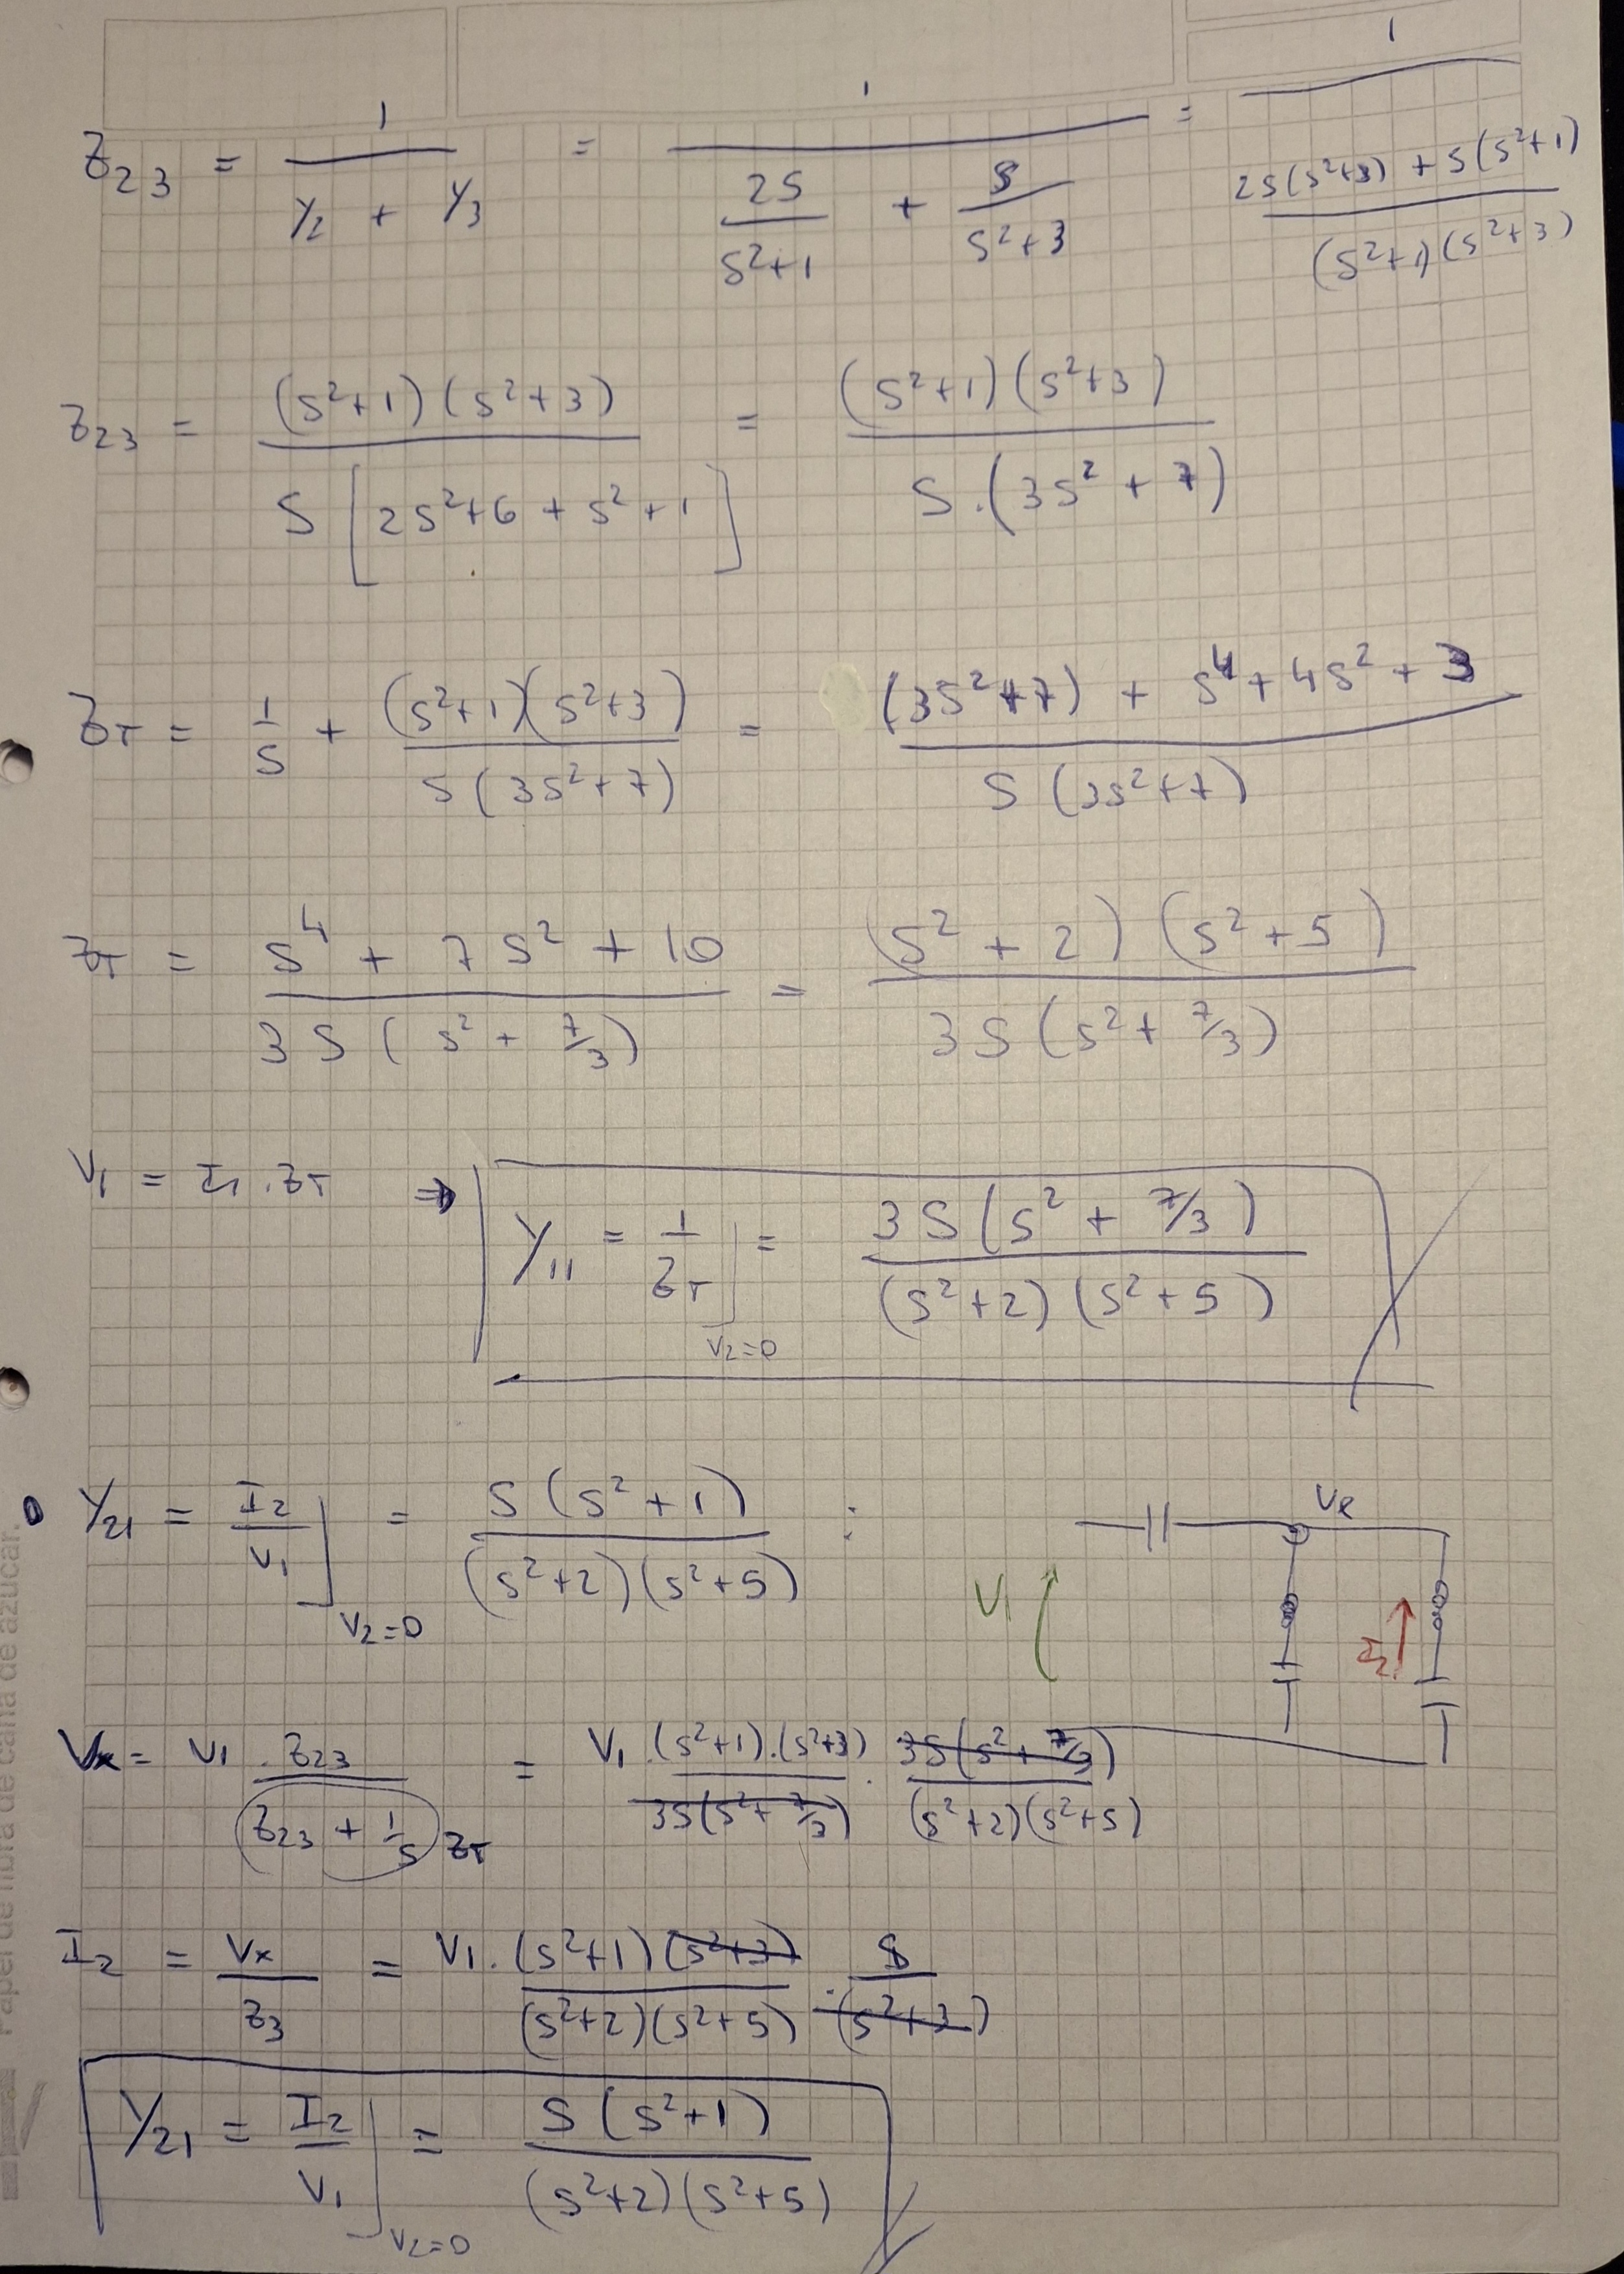 Z23 = 1 / (Y2 + Y3) = 1 / (2S/(S²+1) + S/(S²+3)) = 1 / ((2S(S²+3) + S(S²+1)) / ((S²+1)(S²+3)))
Z23 = (S²+1)(S²+3) / (S[2S²+6+S²+1]) = (S²+1)(S²+3) / (S.(3S²+7))
ZT = 1/S + (S²+1)(S²+3) / (S(3S²+7)) = ((3S²+7) + S⁴+4S²+3) / (S(3S²+7))
ZT = (S⁴ + 7S² + 10) / (3S(S² + 7/3)) = (S²+2)(S²+5) / (3S(S² + 7/3))
V1 = I1.ZT ⇒ Y11 = 1/ZT]V2=0 = 3S(S² + 7/3) / ((S²+2)(S²+5))
Y21 = I2/V1]V2=0 = S(S²+1) / ((S²+2)(S²+5)) :
Vx
V1
I2
Vx = V1 . Z23 / (Z23 + 1/S) ZT = V1.(S²+1).(S²+3) / (3S(S² + 7/3)) . 3S(S² + 7/3) / ((S²+2)(S²+5))
I2 = Vx/Z3 = V1.(S²+1)(S²+3) / ((S²+2)(S²+5)) . S/(S²+3)
Y21 = I2/V1]V2=0 = S(S²+1) / ((S²+2)(S²+5))
Papel de fibra de caña de azúcar.